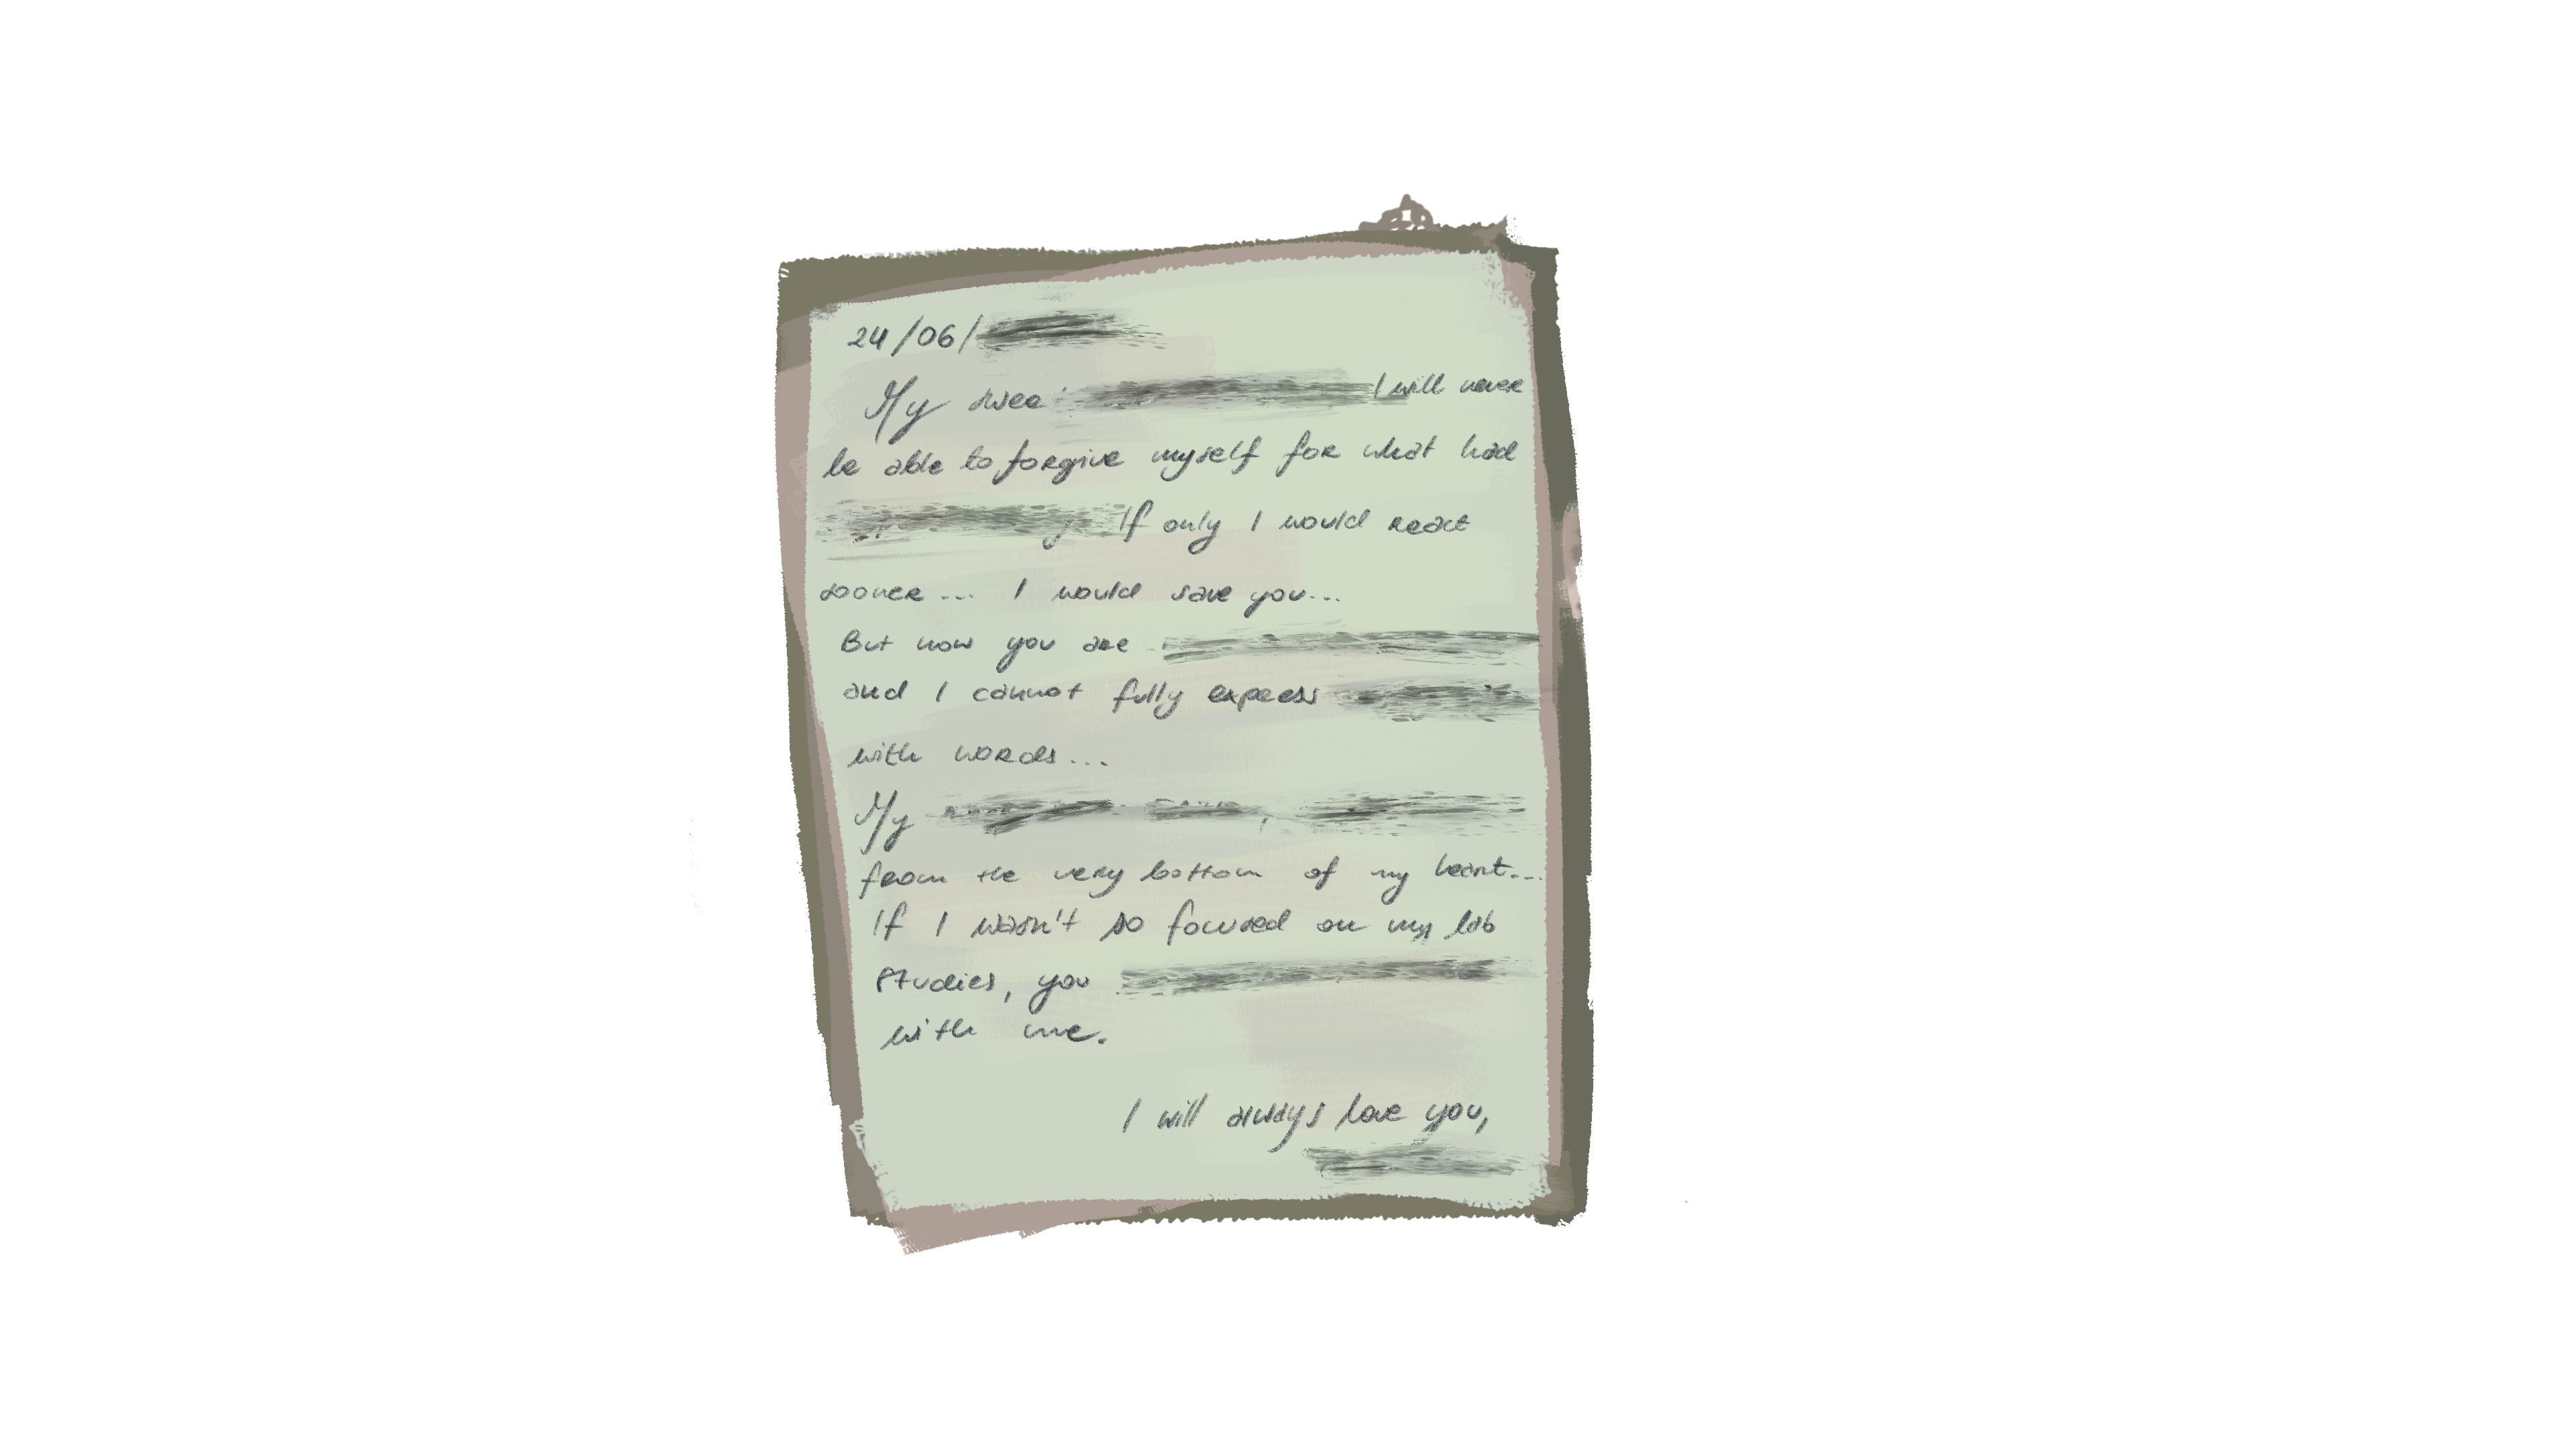 24/06/
My I will never
be able to forgive myself for what had
If only I would react
sooner... I would save you...
But now you are
and I cannot fully express
with words...
My
from the very bottom of my heart...
If I wasn't so focused on my lab
studies, you
with me.
I will always love you,